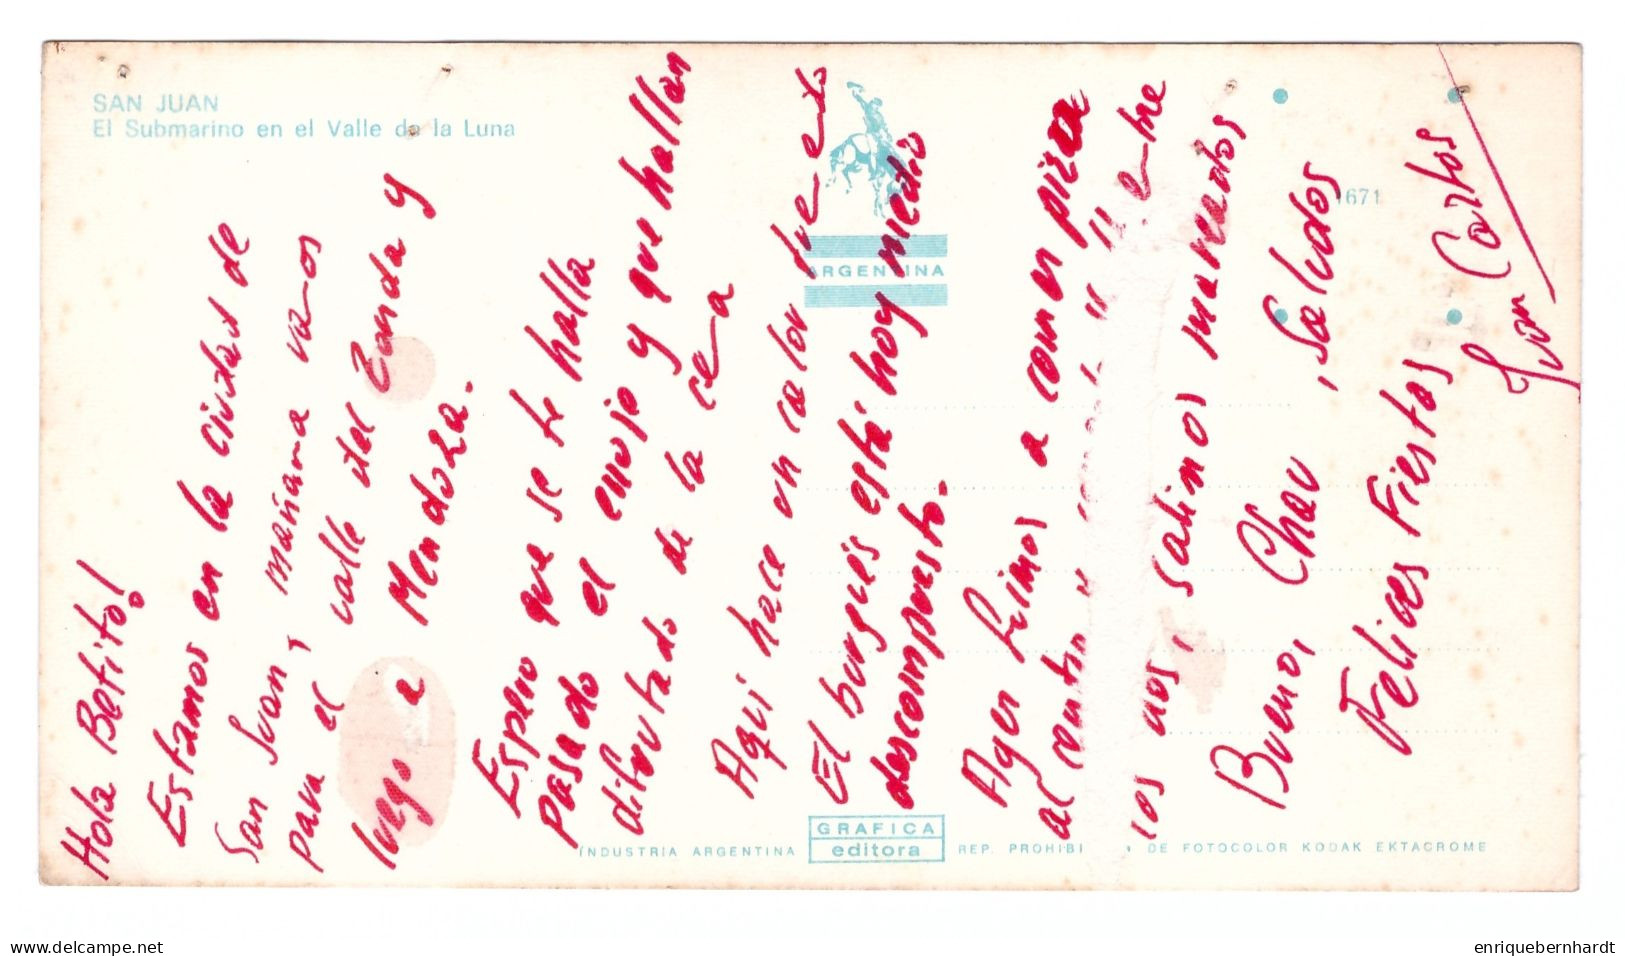 SAN JUAN
El Submarino en el Valle de la Luna
ARGENTINA
1671
Hola Betito!
Estamos en la ciudad de
San Juan, mañana vamos
para el valle del Zonda y
luego a Mendoza.
Espero que se te halla
pasado el enojo y que hallan
disfrutado de la cena
Aquí hace un calor
El burgués está hoy medio
descompuesto.
Ayer fuimos a comer pizza
al
los dos, salimos mareados
Bueno, Chau, Saludos
Felices Fiestas
Juan Carlos
INDUSTRIA ARGENTINA
GRAFICA
editora
REP. PROHIBI DE FOTOCOLOR KODAK EKTACROME
www.delcampe.net
enriquebernhardt